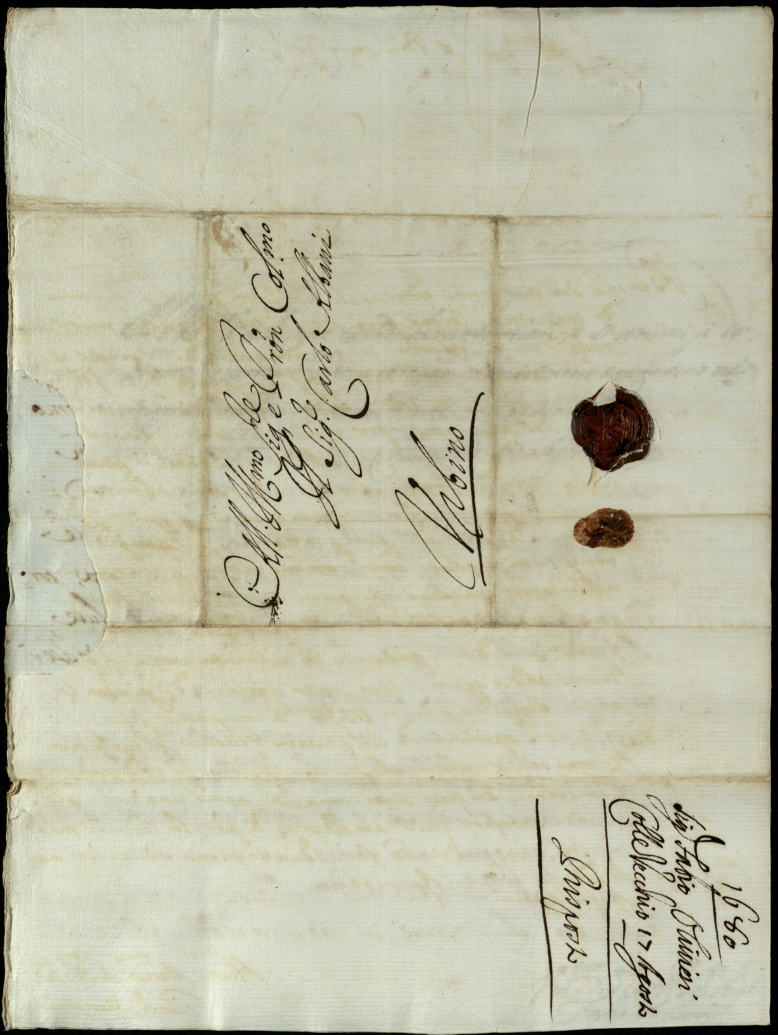 All' Ill.mo Sig.e e Pron Col.mo
Il Sig.r Carlo Albani
Urbino
1680
Sig Fabio Olivieri
Colle Vecchio 17 Agosto
Risposta